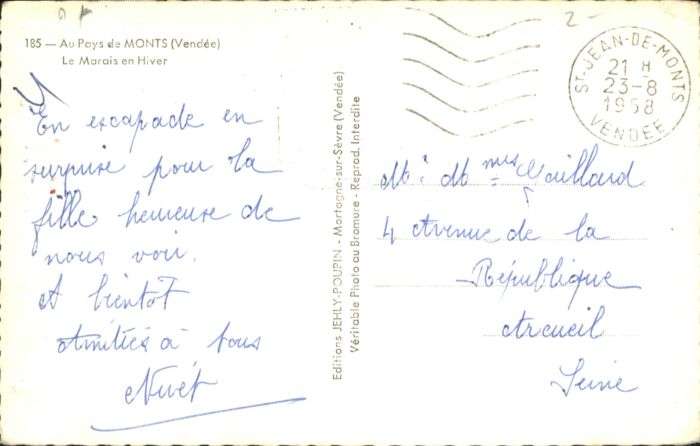 185 — Au Pays de MONTS (Vendée)
Le Marais en Hiver
En escapade en
surprise pour la
fille heureuse de
nous voir.
A bientôt
Amitiés à tous
Editions JEHLY-POUPIN - Mortagne-sur-Sèvre (Vendée)
Véritable Photo au Bromure - Reprod. Interdite
ST-JEAN-DE-MONTS
21 H
23-8
1958
VENDÉE
4 Avenue de la
République
Arcueil
Seine